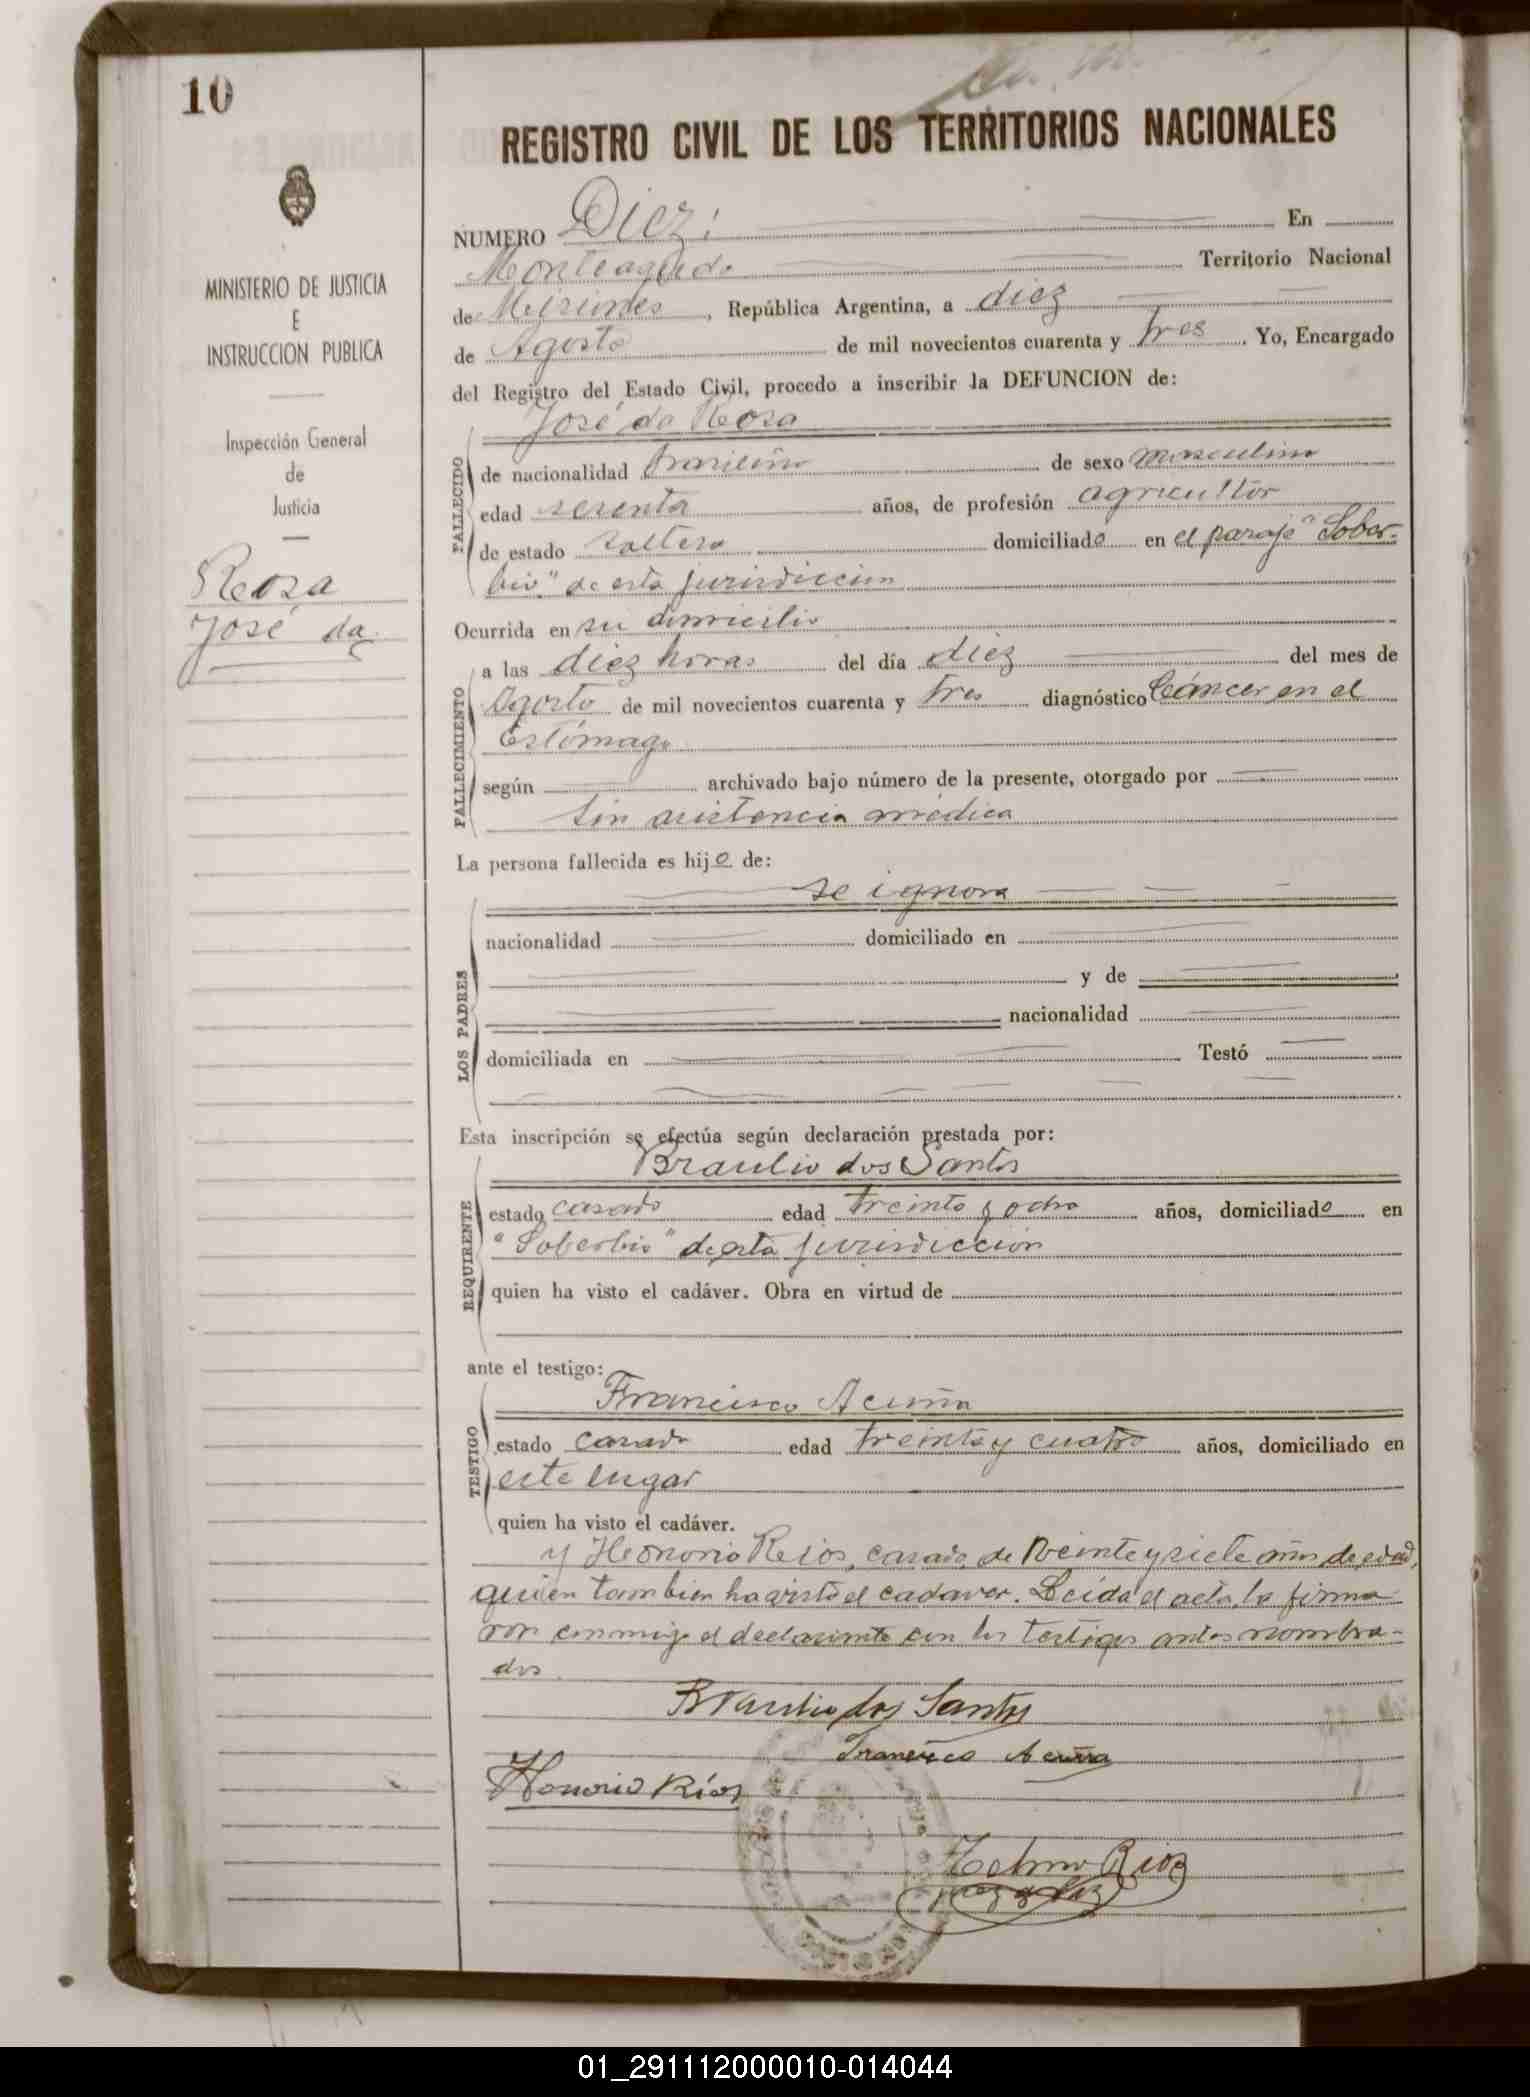 10
REGISTRO CIVIL DE LOS TERRITORIOS NACIONALES
MINISTERIO DE JUSTICIA
E
INSTRUCCION PUBLICA
Inspección General
de
Justicia
Rosa
José da
NUMERO Diez: En
Monteagudo Territorio Nacional
de Misiones, República Argentina, a diez
de Agosto de mil novecientos cuarenta y tres. Yo, Encargado
del Registro del Estado Civil, procedo a inscribir la DEFUNCION de:
José da Rosa
FALLECIDO
de nacionalidad brasileño de sexo masculino
edad sesenta años, de profesión agricultor
de estado soltero domiciliado en el paraje "Sober-
bio" de esta jurisdicción
Ocurrida en su domicilio
FALLECIMIENTO
a las diez horas del día diez del mes de
Agosto de mil novecientos cuarenta y tres diagnóstico Cáncer en el
Estómago
según archivado bajo número de la presente, otorgado por
Sin asistencia médica
La persona fallecida es hijo de:
LOS PADRES
se ignora
nacionalidad domiciliado en
y de
nacionalidad
domiciliada en Testó
Esta inscripción se efectúa según declaración prestada por:
REQUIRENTE
Braulio dos Santos
estado casado edad treinta y ocho años, domiciliado en
"Soberbio" de esta jurisdicción
quien ha visto el cadáver. Obra en virtud de
ante el testigo:
TESTIGO
Francisco Acuña
estado casado edad treinta y cuatro años, domiciliado en
este lugar
quien ha visto el cadáver.
y Honorio Rios, casado, de veinte y siete años de edad,
quien tambien ha visto el cadaver. Leída el acta, la firma
ron conmigo el declarante con los testigos antes nombra-
dos.
Braulio dos Santos
Francisco Acuña
Honorio Ríos
Telmo Rios
Juez de Paz
01_291112000010-014044